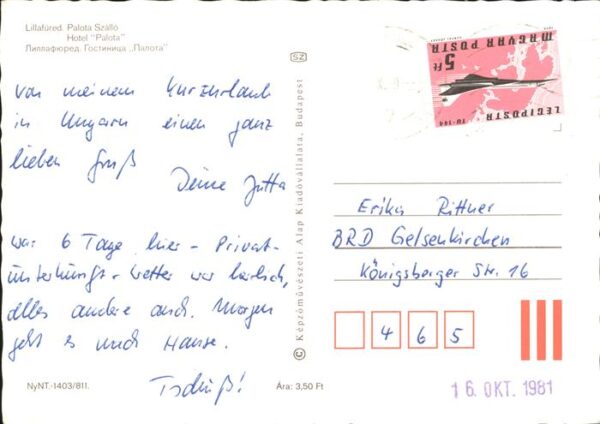 Lillafüred. Palota Szálló
Hotel "Palota"
Лиллафюред. Гостиница „Палота"
Von meinem Kurzurlaub
in Ungarn einen ganz
lieben Gruß
Deine Jutta
war 6 Tage hier - Privat-
unterkunft - Wetter war herrlich,
alles andere auch. Morgen
geht es nach Hause.
Tschüß!
NyNT.-1403/811.
Ára: 3,50 Ft
SZ
© Képzőművészeti Alap Kiadóvállalata, Budapest
LÉGIPOSTA
TU-144
5 Ft
MAGYAR POSTA
Erika Rittner
BRD Gelsenkirchen
Königsberger Str. 16
465
16. OKT. 1981